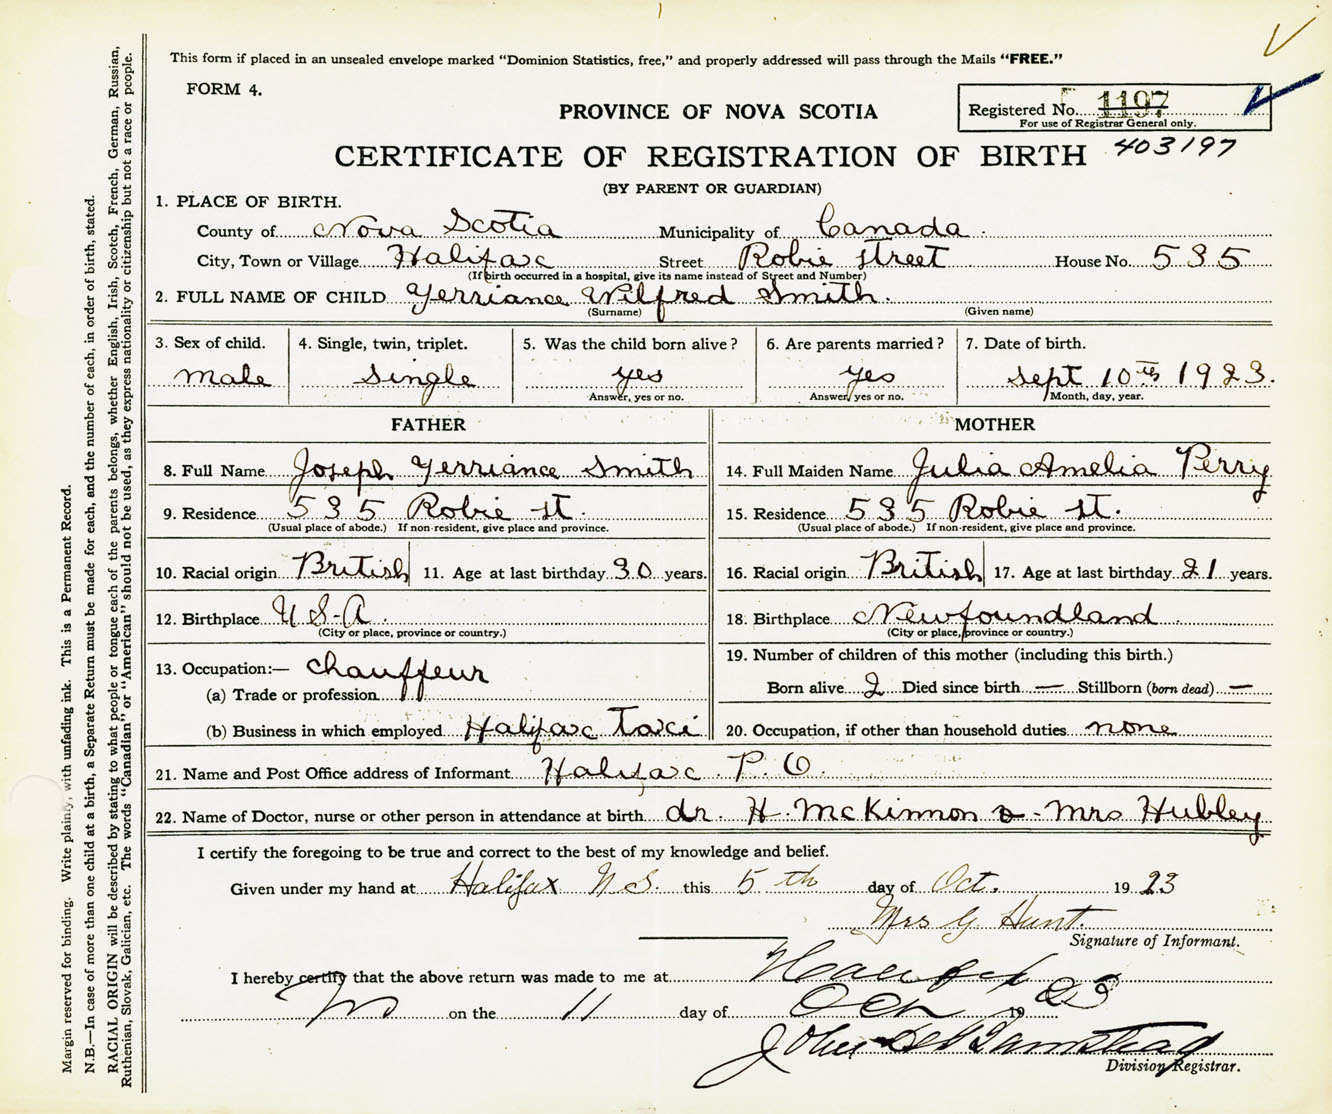 This form if placed in an unsealed envelope marked "Dominion Statistics, free," and properly addressed will pass through the Mails "FREE."
FORM 4.
PROVINCE OF NOVA SCOTIA
Registered No. 1197
For use of Registrar General only.
CERTIFICATE OF REGISTRATION OF BIRTH 403197
(BY PARENT OR GUARDIAN)
1. PLACE OF BIRTH.
County of Nova Scotia Municipality of Canada.
City, Town or Village Halifax Street Robie Street House No. 535
(If birth occurred in a hospital, give its name instead of Street and Number)
2. FULL NAME OF CHILD Yerriance Wilfred Smith.
(Surname) (Given name)
3. Sex of child. 4. Single, twin, triplet. 5. Was the child born alive? 6. Are parents married? 7. Date of birth.
Male Single yes yes Sept 10th 1923.
Answer, yes or no. Answer, yes or no. Month, day, year.
FATHER MOTHER
8. Full Name Joseph Yerriance Smith 14. Full Maiden Name Julia Amelia Perry
9. Residence 535 Robie St. 15. Residence 535 Robie St.
(Usual place of abode.) If non-resident, give place and province. (Usual place of abode.) If non-resident, give place and province.
10. Racial origin British 11. Age at last birthday 30 years. 16. Racial origin British 17. Age at last birthday 21 years.
12. Birthplace U S-A. 18. Birthplace Newfoundland.
(City or place, province or country.) (City or place, province or country.)
13. Occupation:— Chauffeur 19. Number of children of this mother (including this birth.)
(a) Trade or profession Born alive 2 Died since birth — Stillborn (born dead) —
(b) Business in which employed Halifax Taxi 20. Occupation, if other than household duties none
21. Name and Post Office address of Informant Halifax P.O.
22. Name of Doctor, nurse or other person in attendance at birth dr. H. McKinnon & - Mrs Hubley
I certify the foregoing to be true and correct to the best of my knowledge and belief.
Given under my hand at Halifax N.S. this 5th day of Oct. 1923
Mrs G Hunt.
Signature of Informant.
I hereby certify that the above return was made to me at Halifax
NS on the 11 day of Oct 1923
John
Division Registrar.
Margin reserved for binding. Write plainly, with unfading ink. This is a Permanent Record.
N.B.—In case of more than one child at a birth, a Separate Return must be made for each, and the number of each, in order of birth, stated.
RACIAL ORIGIN will be described by stating to what people or tongue each of the parents belongs, whether English, Irish, Scotch, French, German, Russian,
Ruthenian, Slovak, Galician, etc. The words "Canadian" or "American" should not be used, as they express nationality or citizenship but not a race or people.